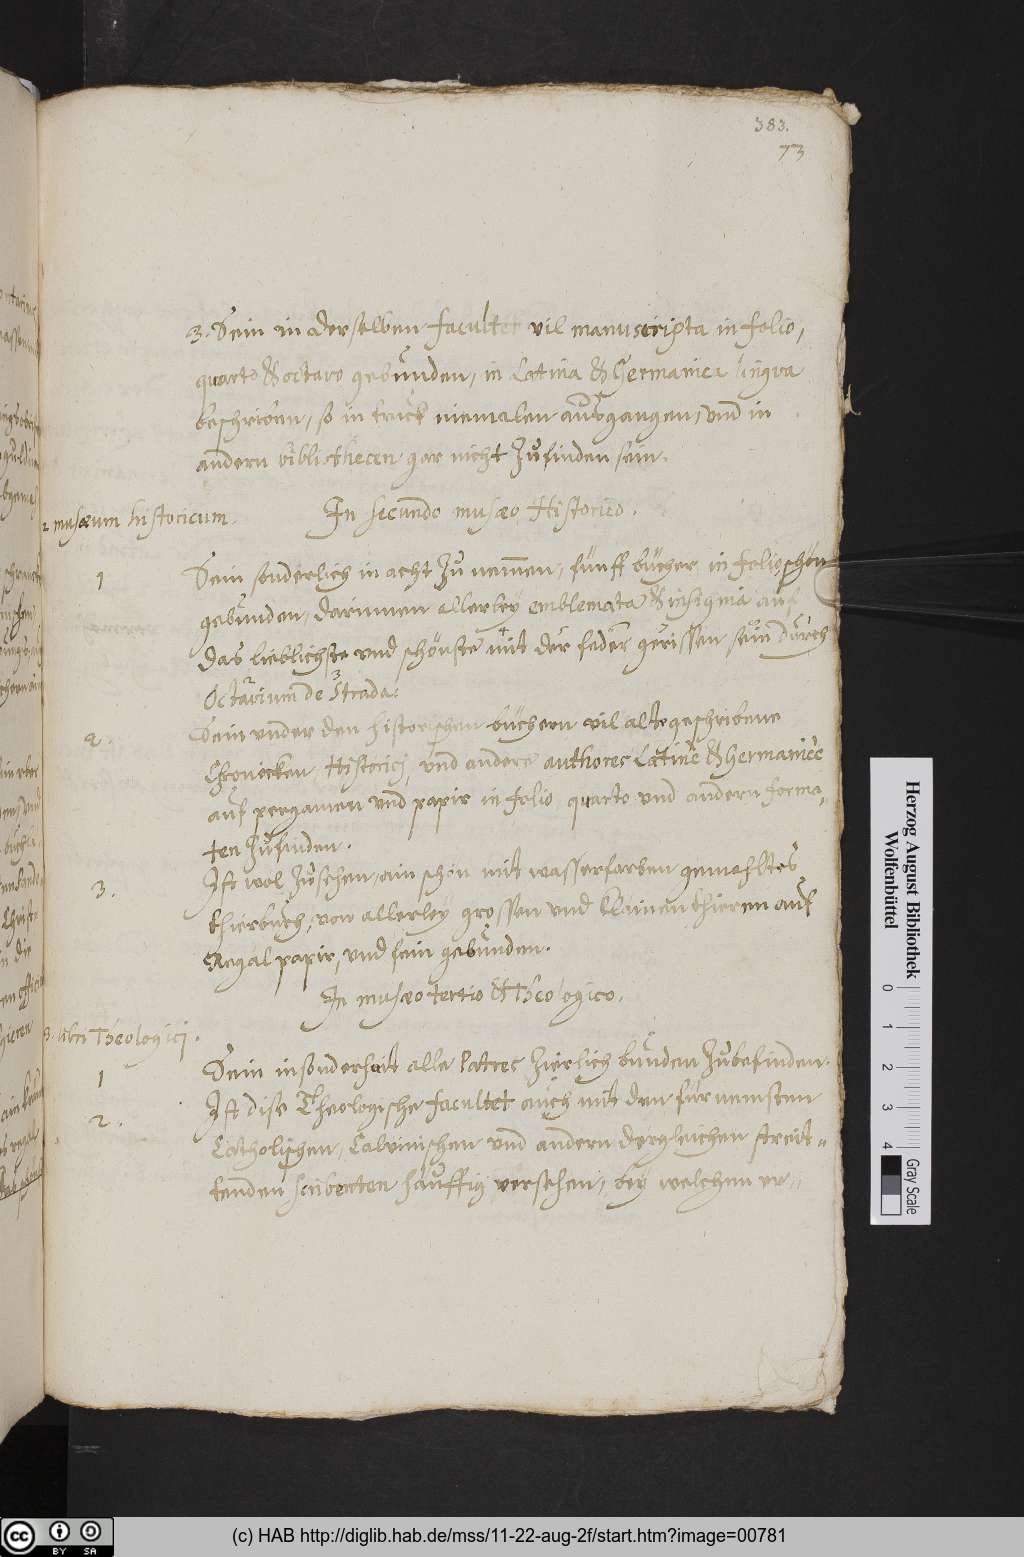 383.
73
3. Sein in derselben facultet vil manuscripta in folio,
quarto & octavo gebunden, in Latina & Germanica lingva
beschriben, so in truck niemalen außgangen, und in
andern bibliothecen gar nicht zu finden sein.
2 musæum historicum.
In secundo musæo Historico.
1
Sein sonderlich in acht zu nemmen, fünff bücher in folio schön
gebunden, darinnen allerley emblemata & insignia auf
das lieblichste und schönste mit der feder gerissen sein durch
Octavium de Strada.
2.
Sein under den historischen büchern vil altegeschribene
Chronicken, Historici, und andere authores Latinè & Germanicè
auf pergamen und papir in folio, quarto und andern forma„
ten zufinden.
3.
Ist wol zusehen, ein schön mit wasserfarben gemahltes
thierbuch, von allerley grossen und klainen thieren auf
Regal papir, und fein gebunden.
In musæo tertio & Theologico.
3. libri Theologici.
1
Sein insonderheit alle Patres zierlich bunden zubefinden.
2.
Ist dise Theologische facultet auch mit den fürnemsten
Catholischen, Calvinischen und andern dergleichen streit„
tenden scribenten häuffig versehen, bey welchen ver„
Herzog August Bibliothek
Wolfenbüttel
0 1 2 3 4
Gray Scale
(c) HAB http://diglib.hab.de/mss/11-22-aug-2f/start.htm?image=00781
cc BY SA